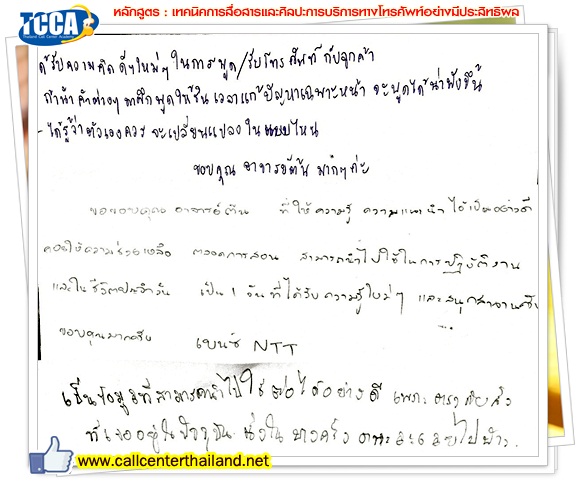 TCCA
Thailand Call Center Academy
หลักสูตร : เทคนิคการสื่อสารและศิลปะการบริการทางโทรศัพท์อย่างมีประสิทธิผล
ได้รับความคิดดีๆใหม่ๆ ในการพูด/รับโทรศัพท์กับลูกค้า
ถ้านำคำต่างๆ มาฝึกพูดให้ชิน เวลาแก้ปัญหาเฉพาะหน้า จะพูดได้น่าฟังขึ้น
- ได้รู้ว่าตัวเองควร จะเปลี่ยนแปลงในแบบไหน
ขอบคุณ อาจารย์ต้น มากๆค่ะ
ขอขอบคุณ อาจารย์ต้น ที่ให้ความรู้ ความแนะนำได้เป็นอย่างดี
คอยให้ความช่วยเหลือ ตลอดการสอน สามารถนำไปใช้ในการปฏิบัติงาน
และในชีวิตประจำวัน เป็น 1 วันที่ได้รับความรู้ใหม่ๆ และสนุกสนานครับ
ขอบคุณมากครับ เบนซ์ NTT
เป็นข้อมูลที่สามารถนำไปใช้ต่อได้อย่างดี เพราะตรงกับสิ่ง
ที่เจออยู่ในปัจจุบัน
Like www.callcenterthailand.net